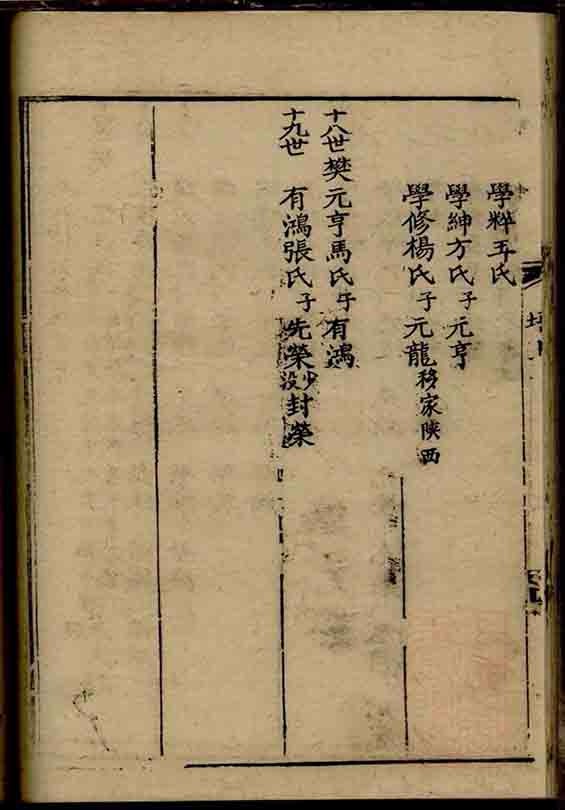 學粹王氏
學紳方氏子元亨
學修楊氏子元龍移家陝西
十八世樊元亨馬氏子有鴻
十九世 有鴻張氏子先榮少没封榮